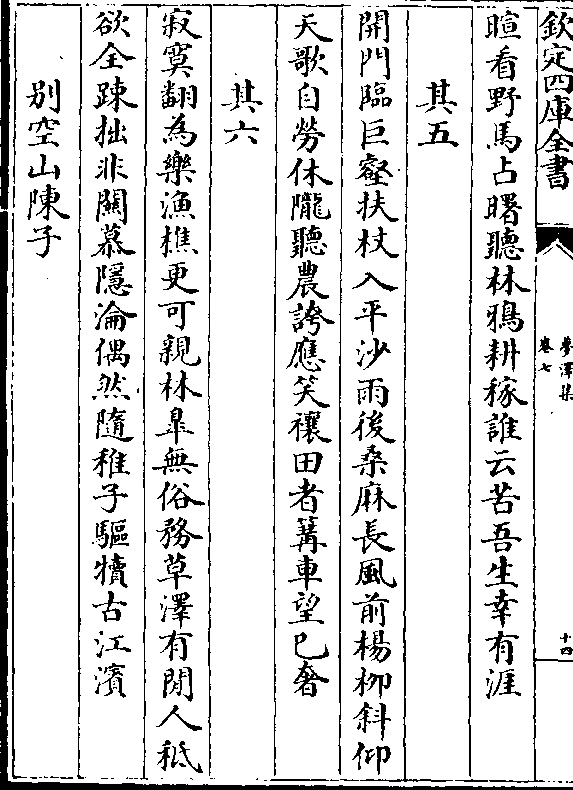 欽定四庫全書
夢澤集
卷七
十四
暄看野馬占曙聽林鴉耕稼誰云苦吾生幸有涯
其五
開門臨巨壑扶杖入平沙雨後桑麻長風前楊柳斜仰
天歌自勞休隴聽農誇應笑禳田者篝車望已奢
其六
寂寞翻為樂漁樵更可親林臯無俗務草澤有閒人秪
欲全踈拙非關慕隱淪偶然隨稚子驅犢古江濱
別空山陳子